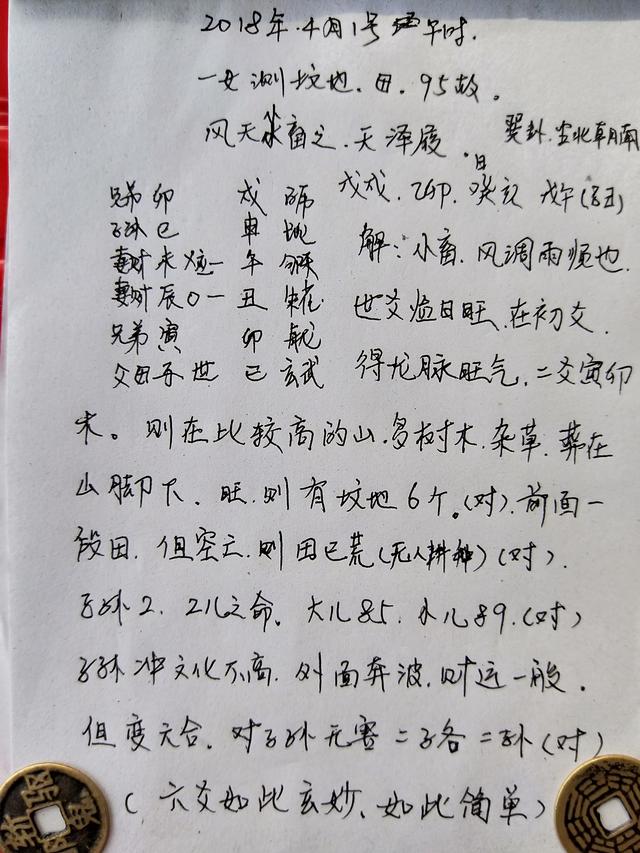 2018年.4月1号 午时.
一女测坟地.田.95故。
风天小畜之.天泽履.
巽卦.坐北朝南
兄弟 卯 戌 戊戌.乙卯.癸亥日 戊午(子丑)
子孙 巳 申 解:小畜.风调雨顺也.
妻财 未 一 午
妻财 辰 0一 丑 朱雀 世爻临日旺.在初爻.
兄弟 寅 卯 青龙
父母 子 世 巳 玄武 得龙脉旺气,二爻寅卯
木。则在比较高的山.多树木.杂草.葬在
山脚下.旺.则有坟地6个.(对).前面一
段田.但空亡.则田已荒(无人耕种)(对).
子孙2.2儿之命.大儿85.小儿89.(对)
子孙冲文化不高.外面奔波.财运一般.
但变六合.对子孙无害二子各二孙(对)
(六爻如此玄妙、如此简单)